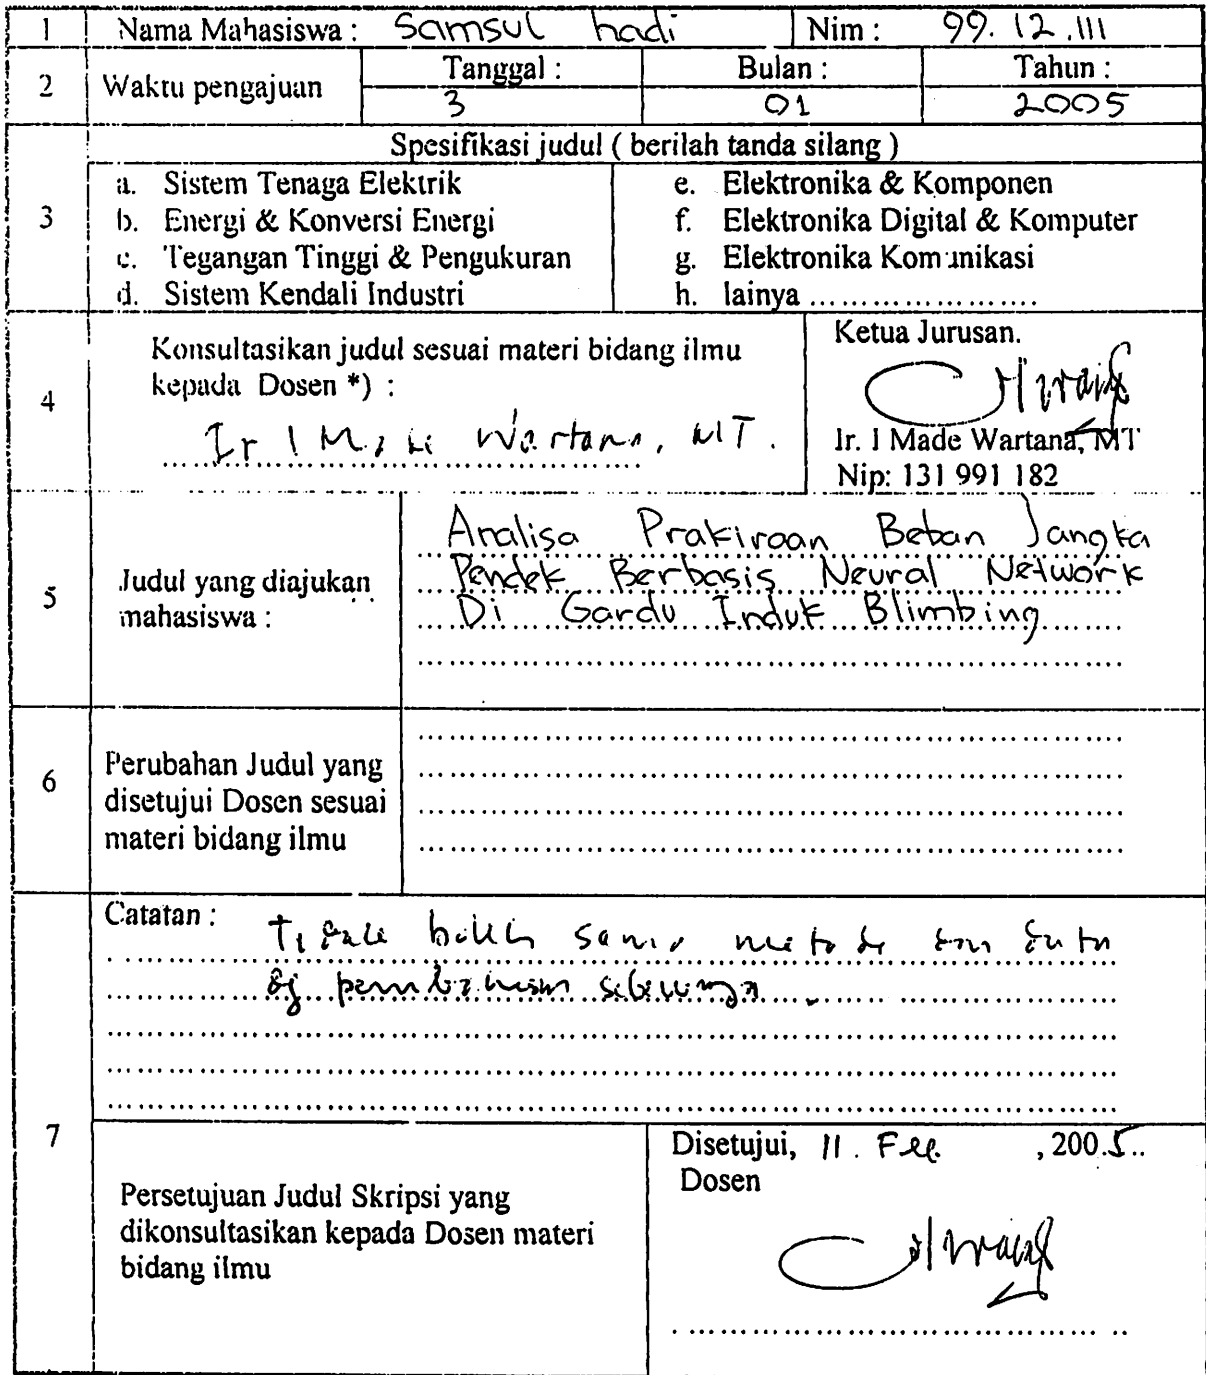 1 Nama Mahasiswa : Samsul hadi Nim : 99.12.111
2 Waktu pengajuan Tanggal : Bulan : Tahun :
3 01 2005
3 Spesifikasi judul ( berilah tanda silang )
a. Sistem Tenaga Elektrik
b. Energi & Konversi Energi
c. Tegangan Tinggi & Pengukuran
d. Sistem Kendali Industri
e. Elektronika & Komponen
f. Elektronika Digital & Komputer
g. Elektronika Komunikasi
h. lainya ......................
4 Konsultasikan judul sesuai materi bidang ilmu
kepada Dosen *) :
Ir I Made Wartana, MT.
Ketua Jurusan.
Ir. I Made Wartana, MT
Nip: 131 991 182
5 Judul yang diajukan
mahasiswa :
Analisa Prakiraan Beban Jangka
Pendek Berbasis Neural Network
Di Gardu Induk Blimbing
6 Perubahan Judul yang
disetujui Dosen sesuai
materi bidang ilmu
7 Catatan :
Tidak boleh sama metode dan data
pembahasan sebelumnya.
Persetujuan Judul Skripsi yang
dikonsultasikan kepada Dosen materi
bidang ilmu
Disetujui, 11. Feb. , 2005..
Dosen